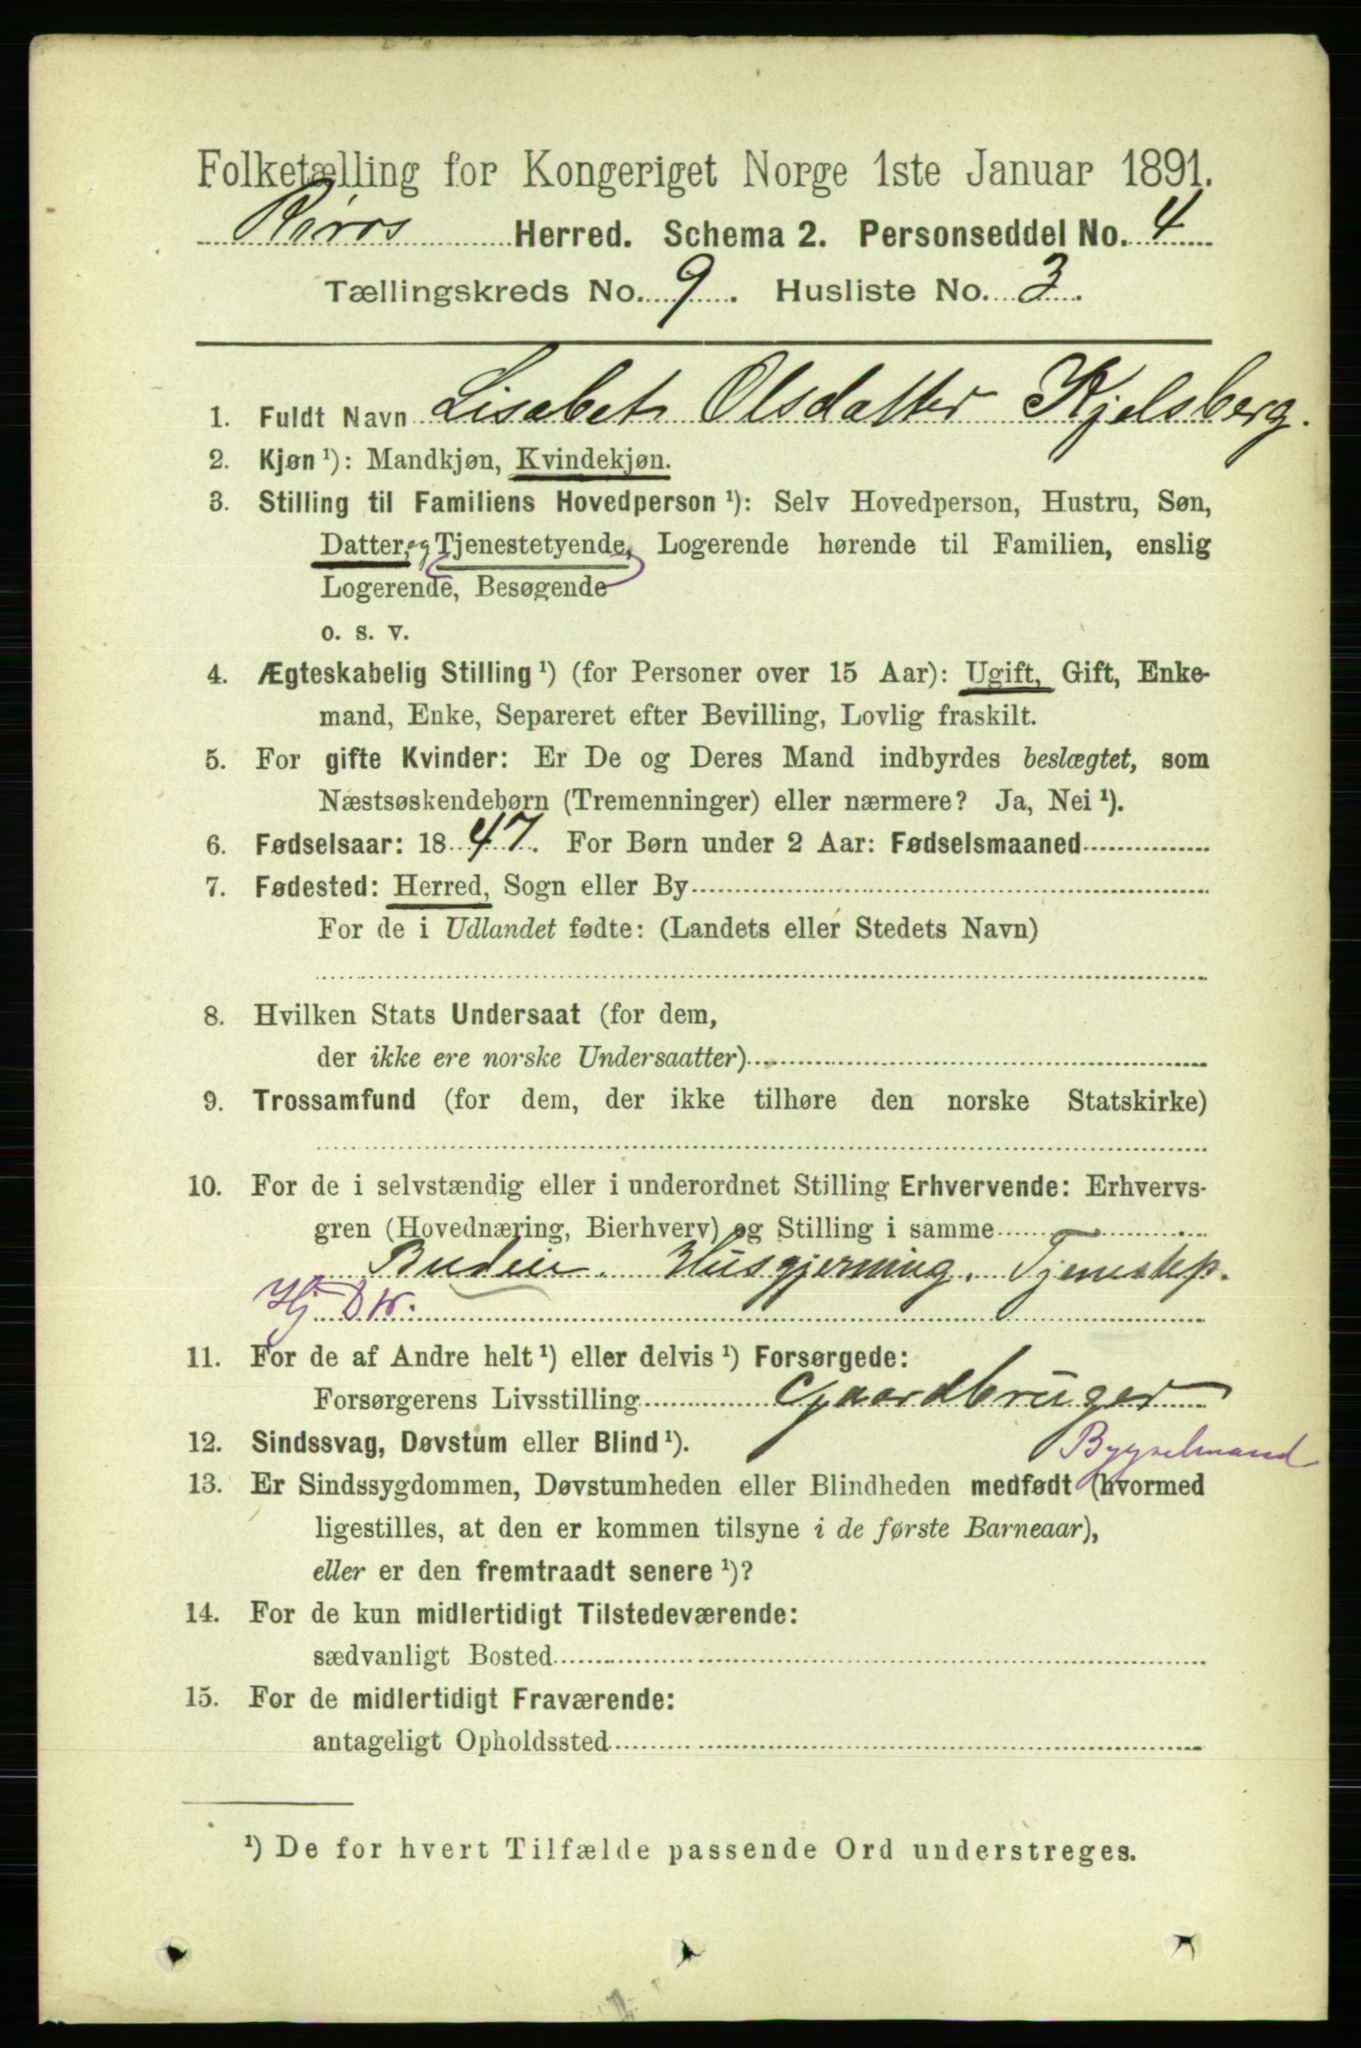 Folketælling for Kongeriget Norge 1ste Januar 1891.
Røros Herred. Schema 2. Personseddel No. 4
Tællingskreds No. 9. Husliste No. 3.
1. Fuldt Navn Lisabet Olsdatter Kjelsberg.
2. Kjøn ¹): Mandkjøn, Kvindekjøn.
3. Stilling til Familiens Hovedperson ¹): Selv Hovedperson, Hustru, Søn,
Datter, og Tjenestetyende, Logerende hørende til Familien, enslig
Logerende, Besøgende
o. s. v.
4. Ægteskabelig Stilling ¹) (for Personer over 15 Aar): Ugift, Gift, Enke-
mand, Enke, Separeret efter Bevilling, Lovlig fraskilt.
5. For gifte Kvinder: Er De og Deres Mand indbyrdes beslægtet, som
Næstsøskendebørn (Tremenninger) eller nærmere? Ja, Nei ¹).
6. Fødselsaar: 1847. For Børn under 2 Aar: Fødselsmaaned
7. Fødested: Herred, Sogn eller By
For de i Udlandet fødte: (Landets eller Stedets Navn)
8. Hvilken Stats Undersaat (for dem,
der ikke ere norske Undersaatter)
9. Trossamfund (for dem, der ikke tilhøre den norske Statskirke)
10. For de i selvstændig eller i underordnet Stilling Erhvervende: Erhvervs-
gren (Hovednæring, Bierhverv) og Stilling i samme
Budeie. Husgjerning. Tjenestep.
11. For de af Andre helt ¹) eller delvis ¹) Forsørgede:
Forsørgerens Livsstilling Gaardbruger
12. Sindssvag, Døvstum eller Blind ¹). Bygselmand
13. Er Sindssygdommen, Døvstumheden eller Blindheden medfødt (hvormed
ligestilles, at den er kommen tilsyne i de første Barneaar),
eller er den fremtraadt senere ¹)?
14. For de kun midlertidigt Tilstedeværende:
sædvanligt Bosted
15. For de midlertidigt Fraværende:
antageligt Opholdssted
¹) De for hvert Tilfælde passende Ord understreges.